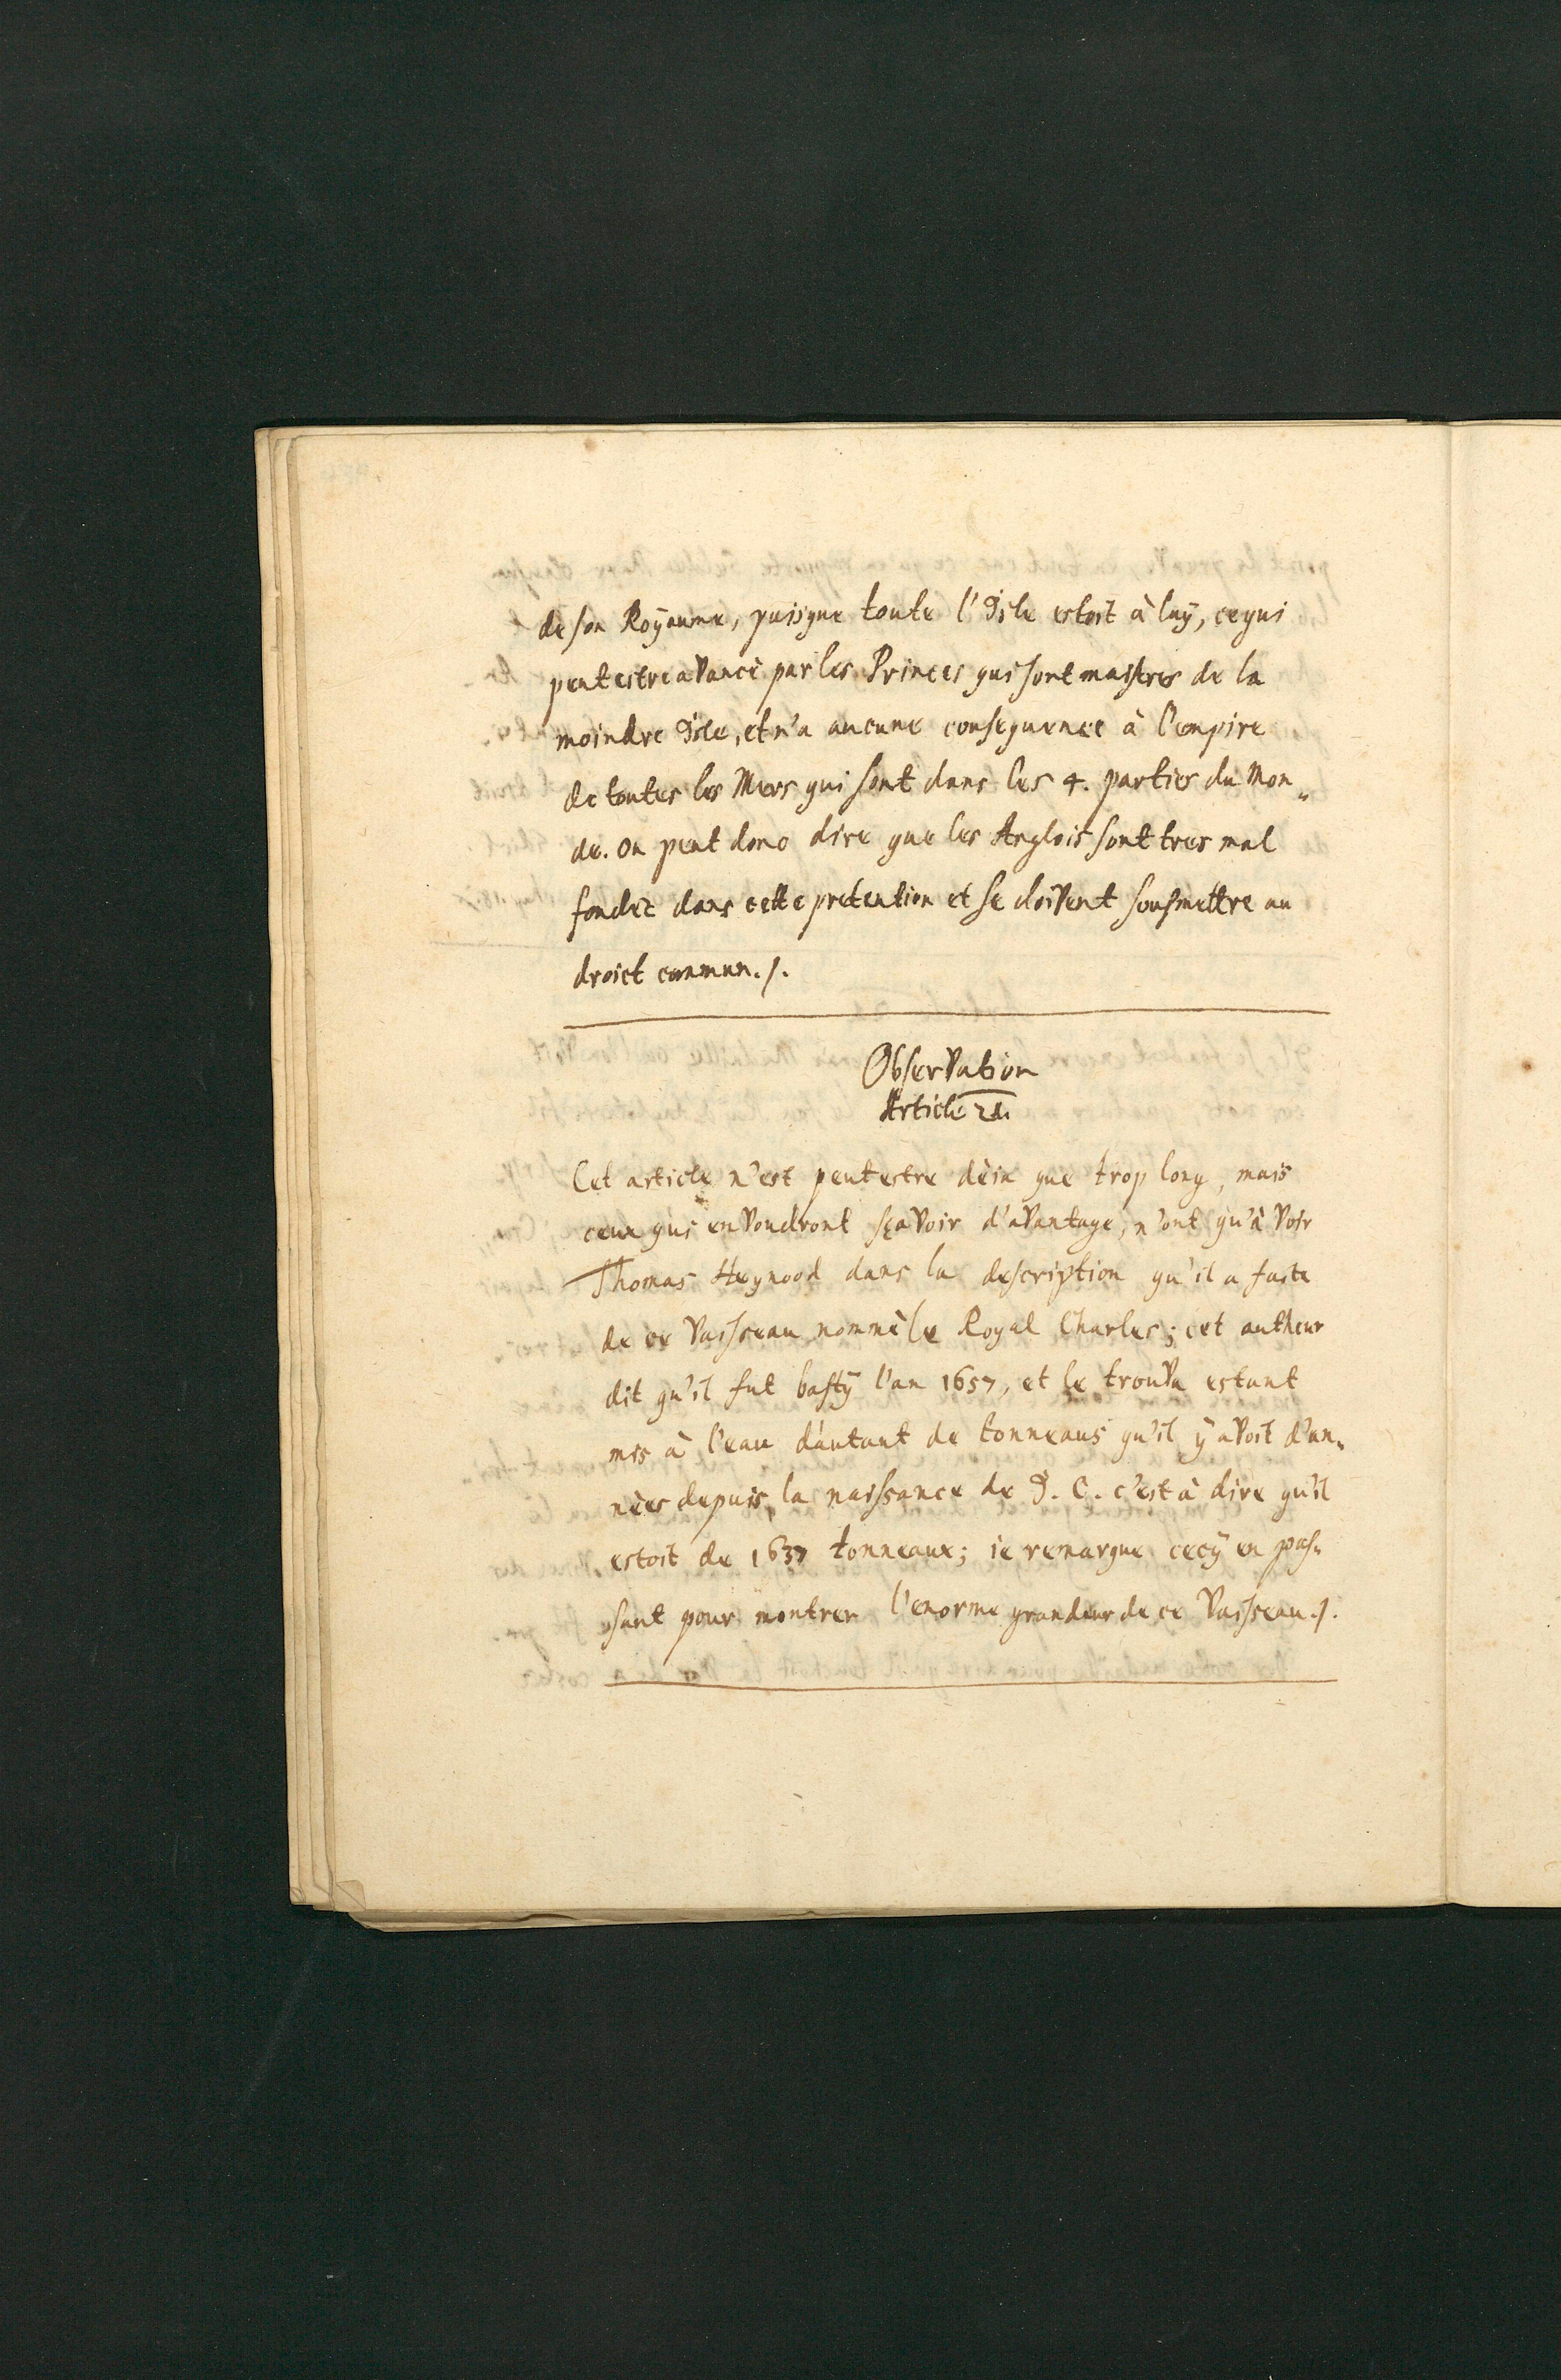 de son Royaume, puisque toute l'Isle estoit à luÿ, ce qui
peut estre avancè par les Princes qui sont maistres de la
moindre Isle, et n'a aucune consequence à l'empire
de toutes les Mers qui sont dans les 4. parties du Mon„
de. on peut donc dire que les Anglois sont tres mal
fondez dans cette pretention et se doivent sousmettre au
droict commun./.
Observation
Article 21.
Cet article n'est peutestre dèia que trop long, mais
ceux qui en voudront sçavoir d'avantage, n'ont qu'à voir
Thomas Heynood dans la description qu'il a faite
de ce Vaisseau nommè le Royal Charles; cet autheur
dit qu'il fut bastÿ l'an 1657, et se trouva estant
mis à l'eau d'autant de tonneaus qu'il ÿ avoit d'an„
nèes depuis la naissance de J. C. c'est à dire qu'il
estoit de 1637 tonneaux; ie remarque cecÿ en pas„
sant pour montrer l'enorme grandeur de ce Vaisseau./.